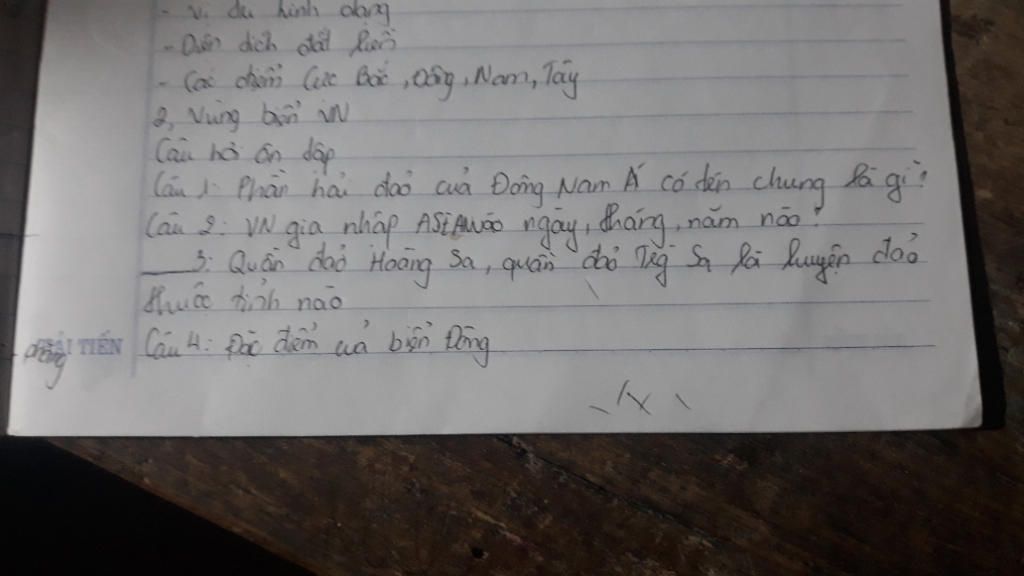 - Vị du hình dạng
- Diện dich đất liền
- Các điểm Cực Bắc, Đông, Nam, Tây
2, Vùng biển VN
Câu hỏi ôn dập
Câu 1: Phần hải đảo của Đông Nam Á có dên chung là gì?
Câu 2: VN gia nhập ASEAN vào ngày, tháng, năm nào?
3: Quần đảo Hoàng Sa, quần đảo Sa là huyện đảo
thuộc tỉnh nào
HẢI TIẾN
Câu 4: Đặc điểm của biển Đông